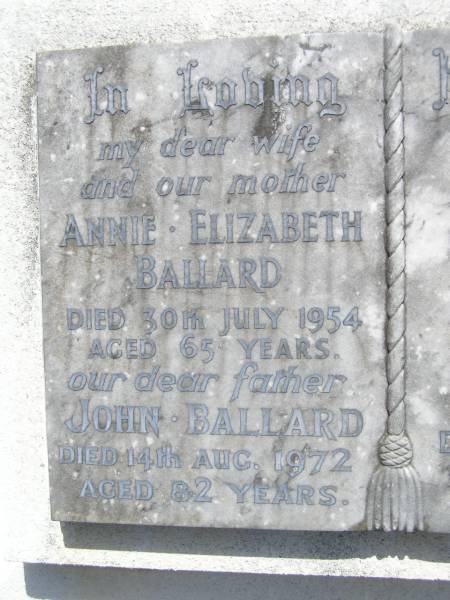 In Loving
my dear wife
and our mother
ANNIE · ELIZABETH
BALLARD
DIED 30th JULY 1954
AGED 65 YEARS.
our dear father
JOHN · BALLARD
DIED 14th AUG. 1972
AGED 82 YEARS.